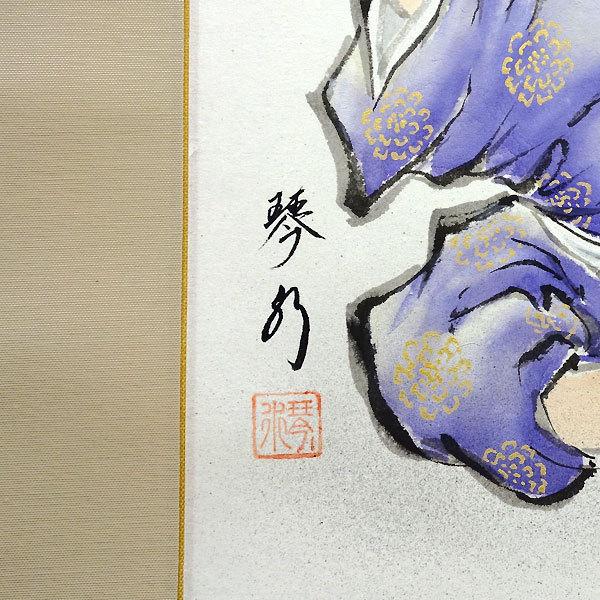 琴水
琴水